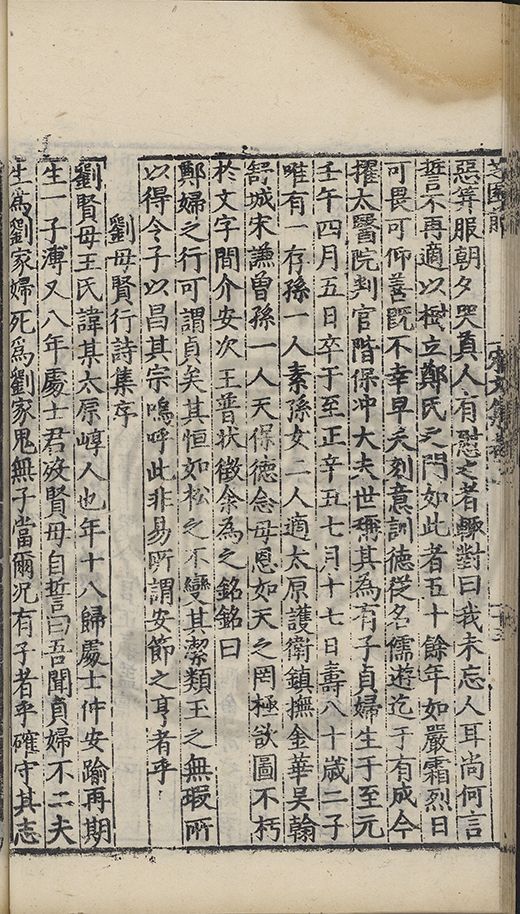 惡笄服朝夕哭奠人有慰之者輙對曰我未忘人耳尚何言
誓不再適以樹立鄭氏之門如此者五十餘年如嚴霜烈日
可畏可仰善既不幸早矣刻意訓德從名儒遊迄于有成今
擢太醫院判官階保冲大夫世稱其為有子貞婦生于至元
壬午四月五日卒于至正辛丑七月十七日壽八十歲二子
唯有一存孫一人素孫女二人適太原護衛鎮撫金華吳翰
舒城宋謙曾孫一人天保德念母恩如天之罔極欲圖不朽
於文字間介安次王普狀徵余為之銘銘曰
鄭婦之行可謂貞矣其恒如松之不變其潔類玉之無瑕所
以得令子以昌其宗嗚呼此非易所謂安節之亨者乎
劉母賢行詩集序
劉賢母王氏諱某太原崞人也年十八歸處士仲安踰再期
生一子溥又八年處士君歿賢母自誓曰吾聞貞婦不二夫
生爲劉家婦死爲劉家鬼無子當爾況有子者乎確守其志